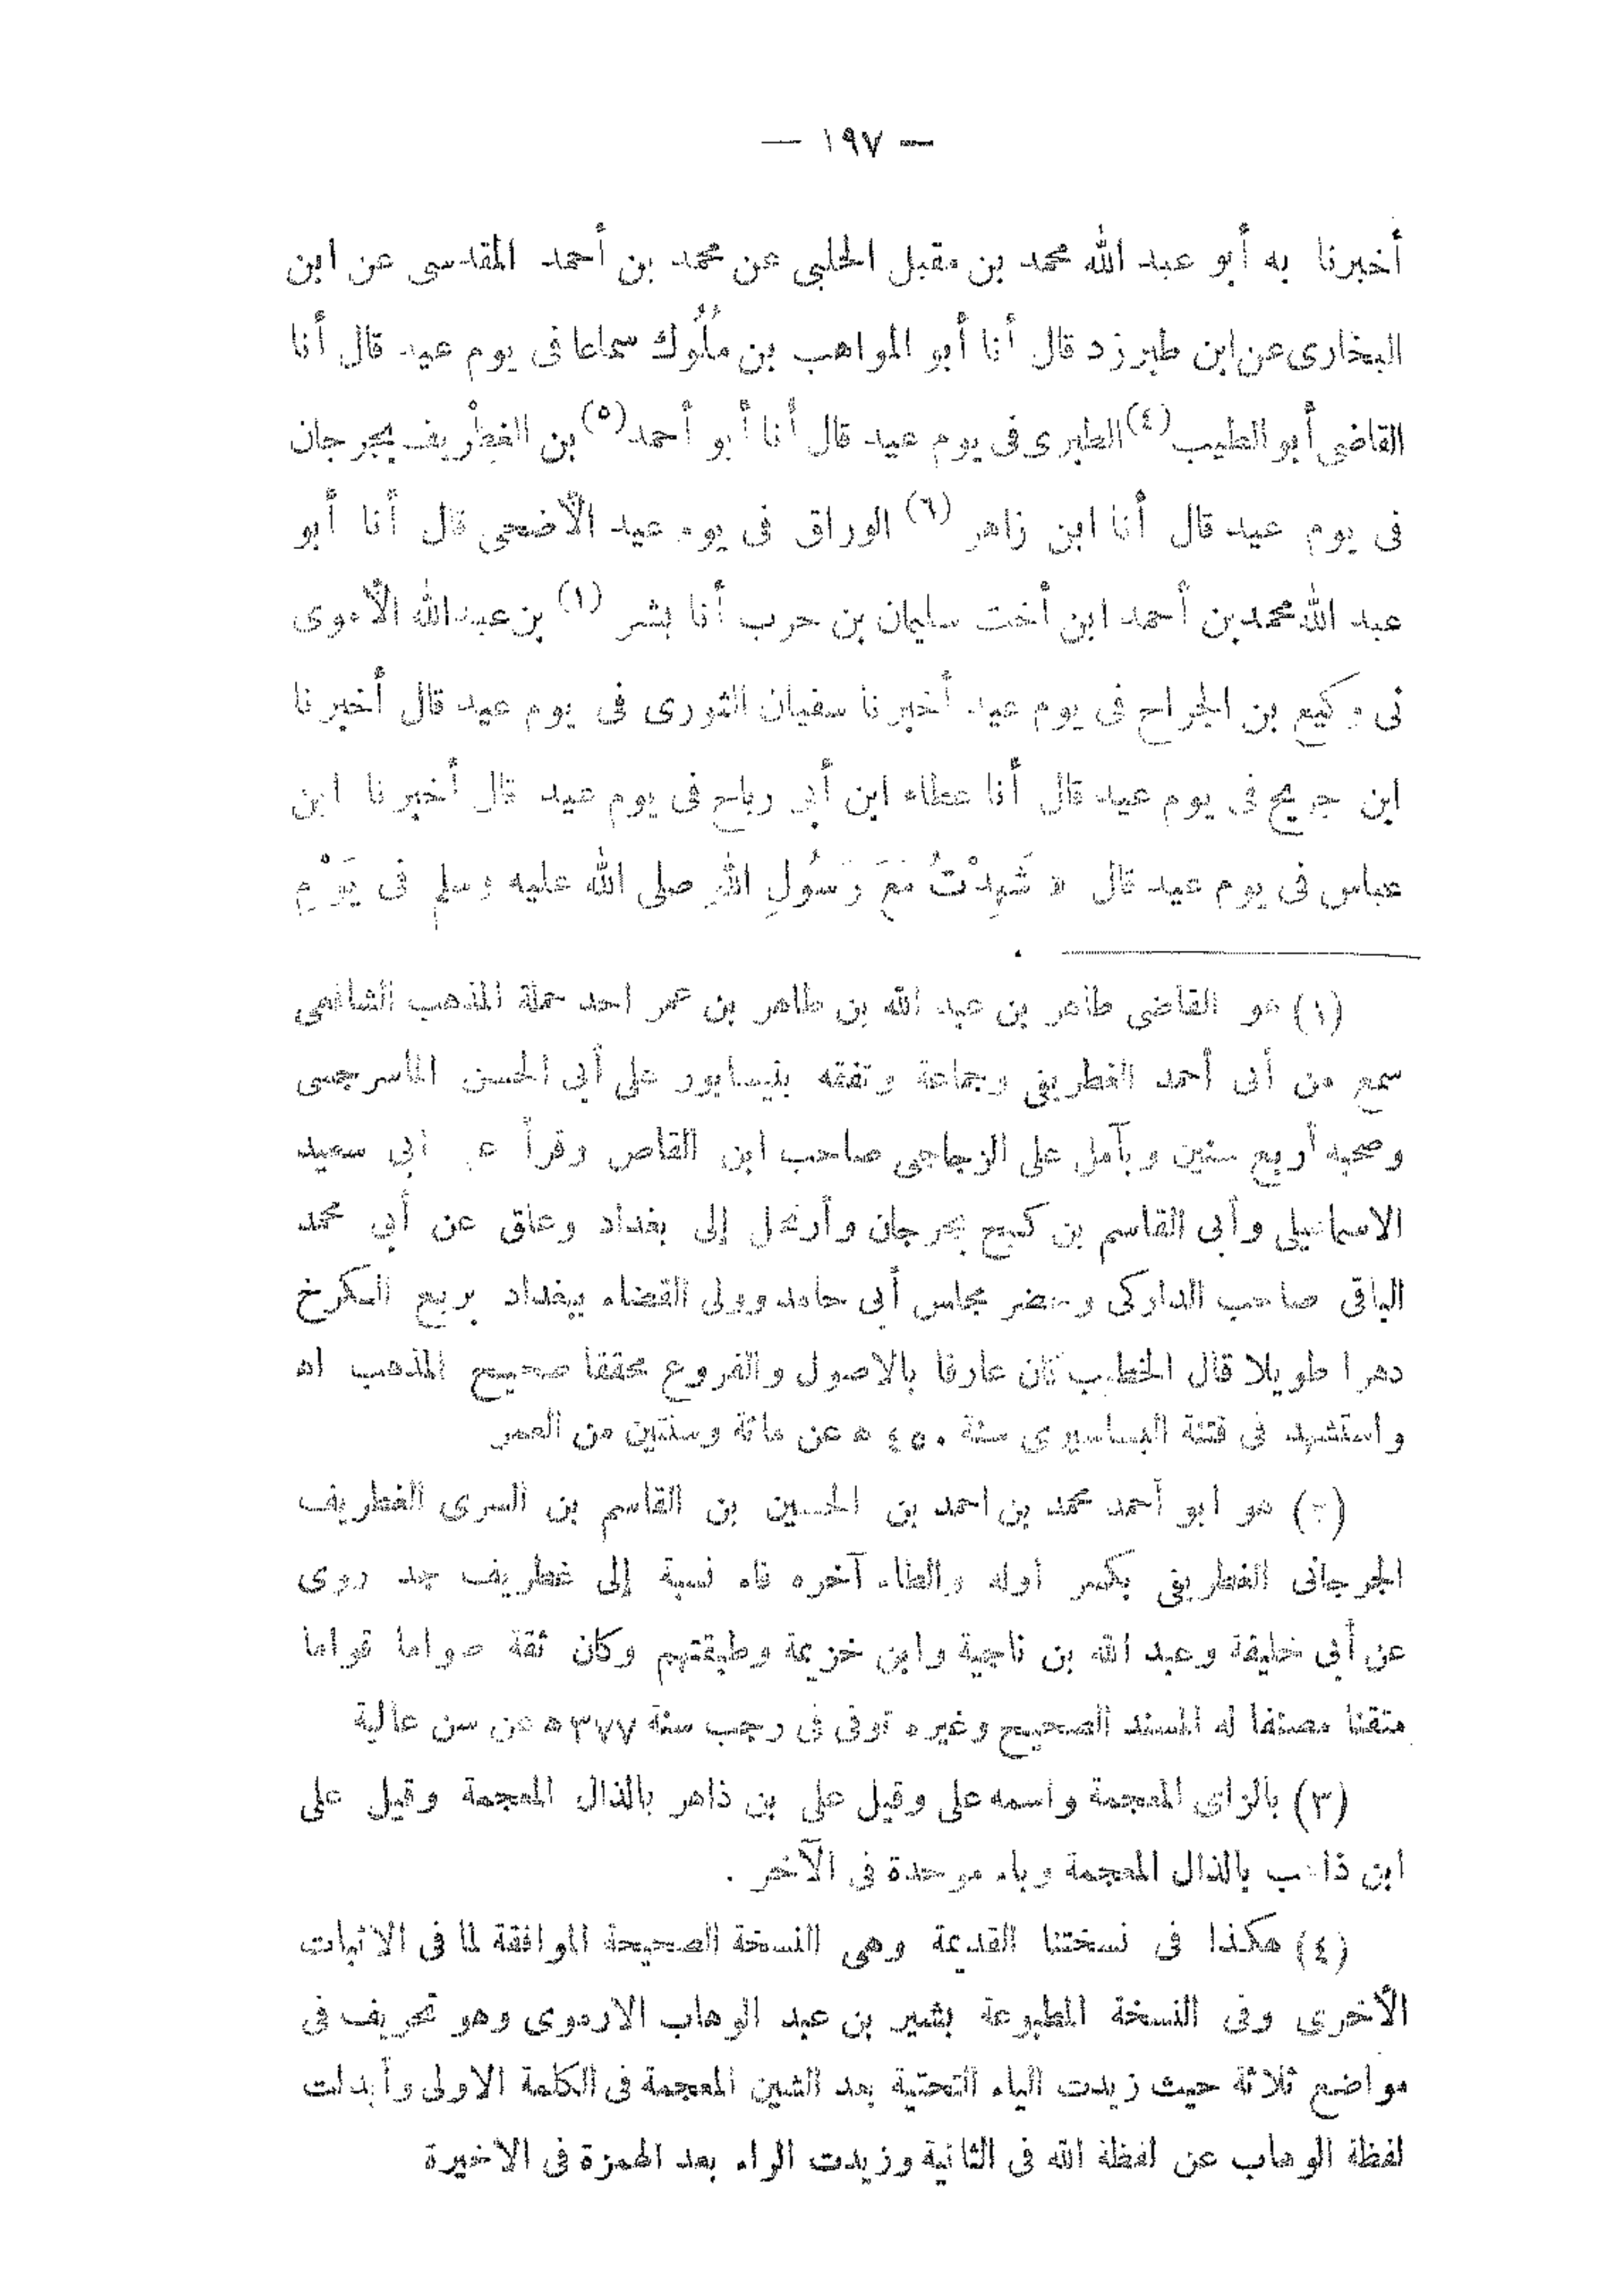 — ١٩٧ —
أخبرنا به أبو عبد الله محمد بن مقبل الحلبي عن محمد بن أحمد المقدسى عن ابن
البخارى عن ابن طبرزد قال أنا أبو المواهب بن مُلُوك سماعا فى يوم عيد قال أنا
القاضى أبو الطيب (٤) الطبرى فى يوم عيد قال أنا أبو أحمد (٥) بن الغِطْريف بجرجان
فى يوم عيد قال أنا ابن زاهر (٦) الوراق فى يوم عيد الأضحى قال أنا أبو
عبد الله محمد بن أحمد ابن أخت سليمان بن حرب أنا بشر (١) بن عبد الله الأموى
نى وكيع بن الجراح فى يوم عيد أخبرنا سفيان الثورى فى يوم عيد قال أخبرنا
ابن جريج فى يوم عيد قال أنا عطاء ابن أبى رباح فى يوم عيد قال أخبرنا ابن
عباس فى يوم عيد قال « شَهِدْتُ مَعَ رَسُولِ اللهِ صلى الله عليه وسلم فى يَوْمِ
(١) هو القاضى طاهر بن عبد الله بن طاهر بن عمر احد حملة المذهب الشافعى
سمع من أبى أحمد الغطريفى وجماعة وتفقه بنيسابور على أبى الحسن الماسرجسى
وصحبه أربع سنين وبآمل على الزجاجى صاحب ابن القاص وقرأ ابى سعيد
الاسماعيلى وأبى القاسم بن كج بجرجان وأرتحل إلى بغداد وعلق عن أبي محمد
الباقى صاحب الداركى وحضر مجلس أبى حامد وولى القضاء ببغداد بربع الكرخ
دهرا طويلا قال الخطيب كان عارفا بالاصول والفروع محققا صحيح المذهب اه
واستشهد فى فتنة البساسيرى سنة ٤٥٠ ه عن مائة وسنتين من العمر
(٢) هو ابو أحمد محمد بن احمد بن الحسين بن القاسم بن السرى الغطريف
الجرجانى الغطريفى بكسر اوله والطاء آخره فاء نسبة إلى غطريف جد روى
عن أبى خليفة وعبد الله بن ناجية وابن خزيمة وطبقتهم وكان ثقة صواما قواما
متقنا مصنفا له المسند الصحيح وغيره توفى فى رجب سنة ٣٧٧ ه عن سن عالية
(٣) بالزاى المعجمة واسمه على وقيل على بن ذاهر بالذال المعجمة وقيل على
ابن ذاهب بالذال المعجمة وباء موحدة فى الآخر .
(٤) هكذا فى نسختنا القديمة وهى النسخة الصحيحة الموافقة لما فى الاثبات
الأخرى وفى النسخة المطبوعة بشير بن عبد الوهاب الارموى وهو تحريف فى
مواضع ثلاثة حيث زيدت الياء التحتية بعد الشين المعجمة فى الكلمة الاولى وأبدلت
لفظة الوهاب عن لفظة الله فى الثانية وزيدت الراء بعد الهمزة فى الاخيرة